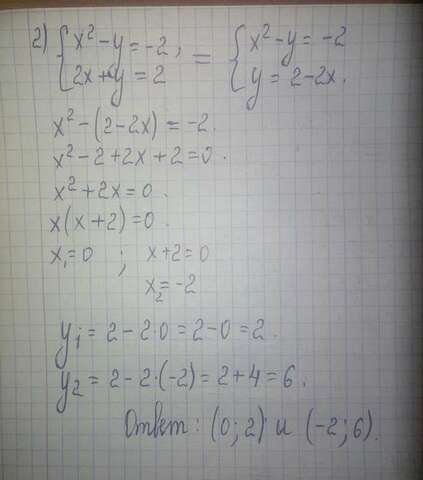 2) { x² - y = -2, = { x² - y = -2
2x + y = 2 y = 2 - 2x.
x² - (2 - 2x) = -2.
x² - 2 + 2x + 2 = 0.
x² + 2x = 0.
x(x + 2) = 0.
x₁ = 0 ; x + 2 = 0
x₂ = -2
y₁ = 2 - 2·0 = 2 - 0 = 2.
y₂ = 2 - 2·(-2) = 2 + 4 = 6.
Ответ: (0; 2) и (-2; 6).